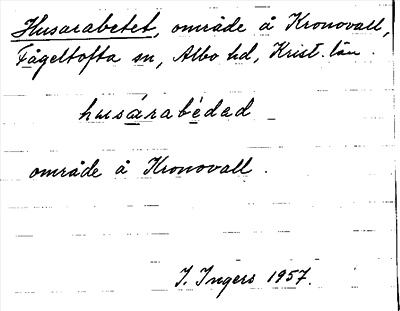 Husarabetet, område å Kronovall,
Fågeltofta sn, Albo hd, Krist. län.
husárabédad
område å Kronovall.
I. Ingers 1957.